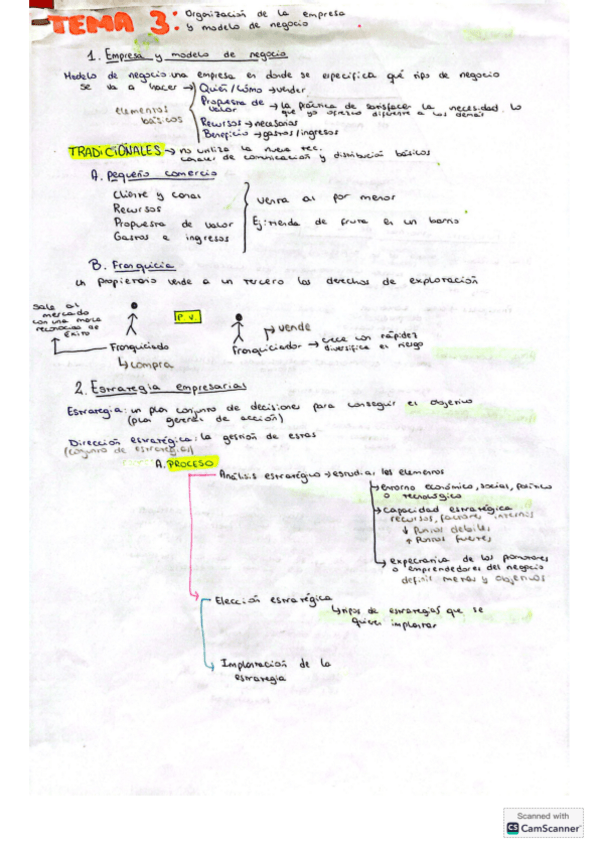 TEMA 3: Organización de la empresa
y modelo de negocio
1. Empresa y modelo de negocio
Modelo de negocio una empresa es donde se especifica qué tipo de negocio
se va a hacer → Quién / Cómo → vender
elementos
básicos
Propuesta de → La práctica de satisfacer la necesidad. lo
valor que yo ofrezco diferente a los demás
Recursos → necesarios
Beneficio → gastos/ingresos
TRADICIONALES → no utiliza la nueva tec.
canales de comunicación y distribución básicos
A. Pequeño comercio
Cliente y canal
Recursos
Propuesta de valor
Gastos e ingresos
venta al por menor
Ej: tienda de fruta en un barrio
B. Franquicia
un propietario vende a un tercero los derechos de explotación
Sale al
mercado
con una marca
reconocida de
éxito
P.V.
Franquiciado
↳ compra
vende
Franquiciador → crece con rápidez
diversifica el riesgo
2. Estrategia empresarial
Estrategia: un plan conjunto de decisiones para conseguir el objetivo
(plan general de acción)
Dirección estratégica: la gestión de estas
(conjunto de estrategias)
A. PROCESO
Análisis estratégico → estudiar los elementos
→ entorno económico, social, político
o tecnológico
→ capacidad estratégica
recursos, factores internos
↓ puntos débiles
+ Puntos fuertes
→ expectativa de los promotores
o emprendedores del negocio
definir metas y objetivos
Elección estratégica
↳ tipos de estrategias que se
quieren implantar
Implantación de la
estrategia
Scanned with
CS CamScanner